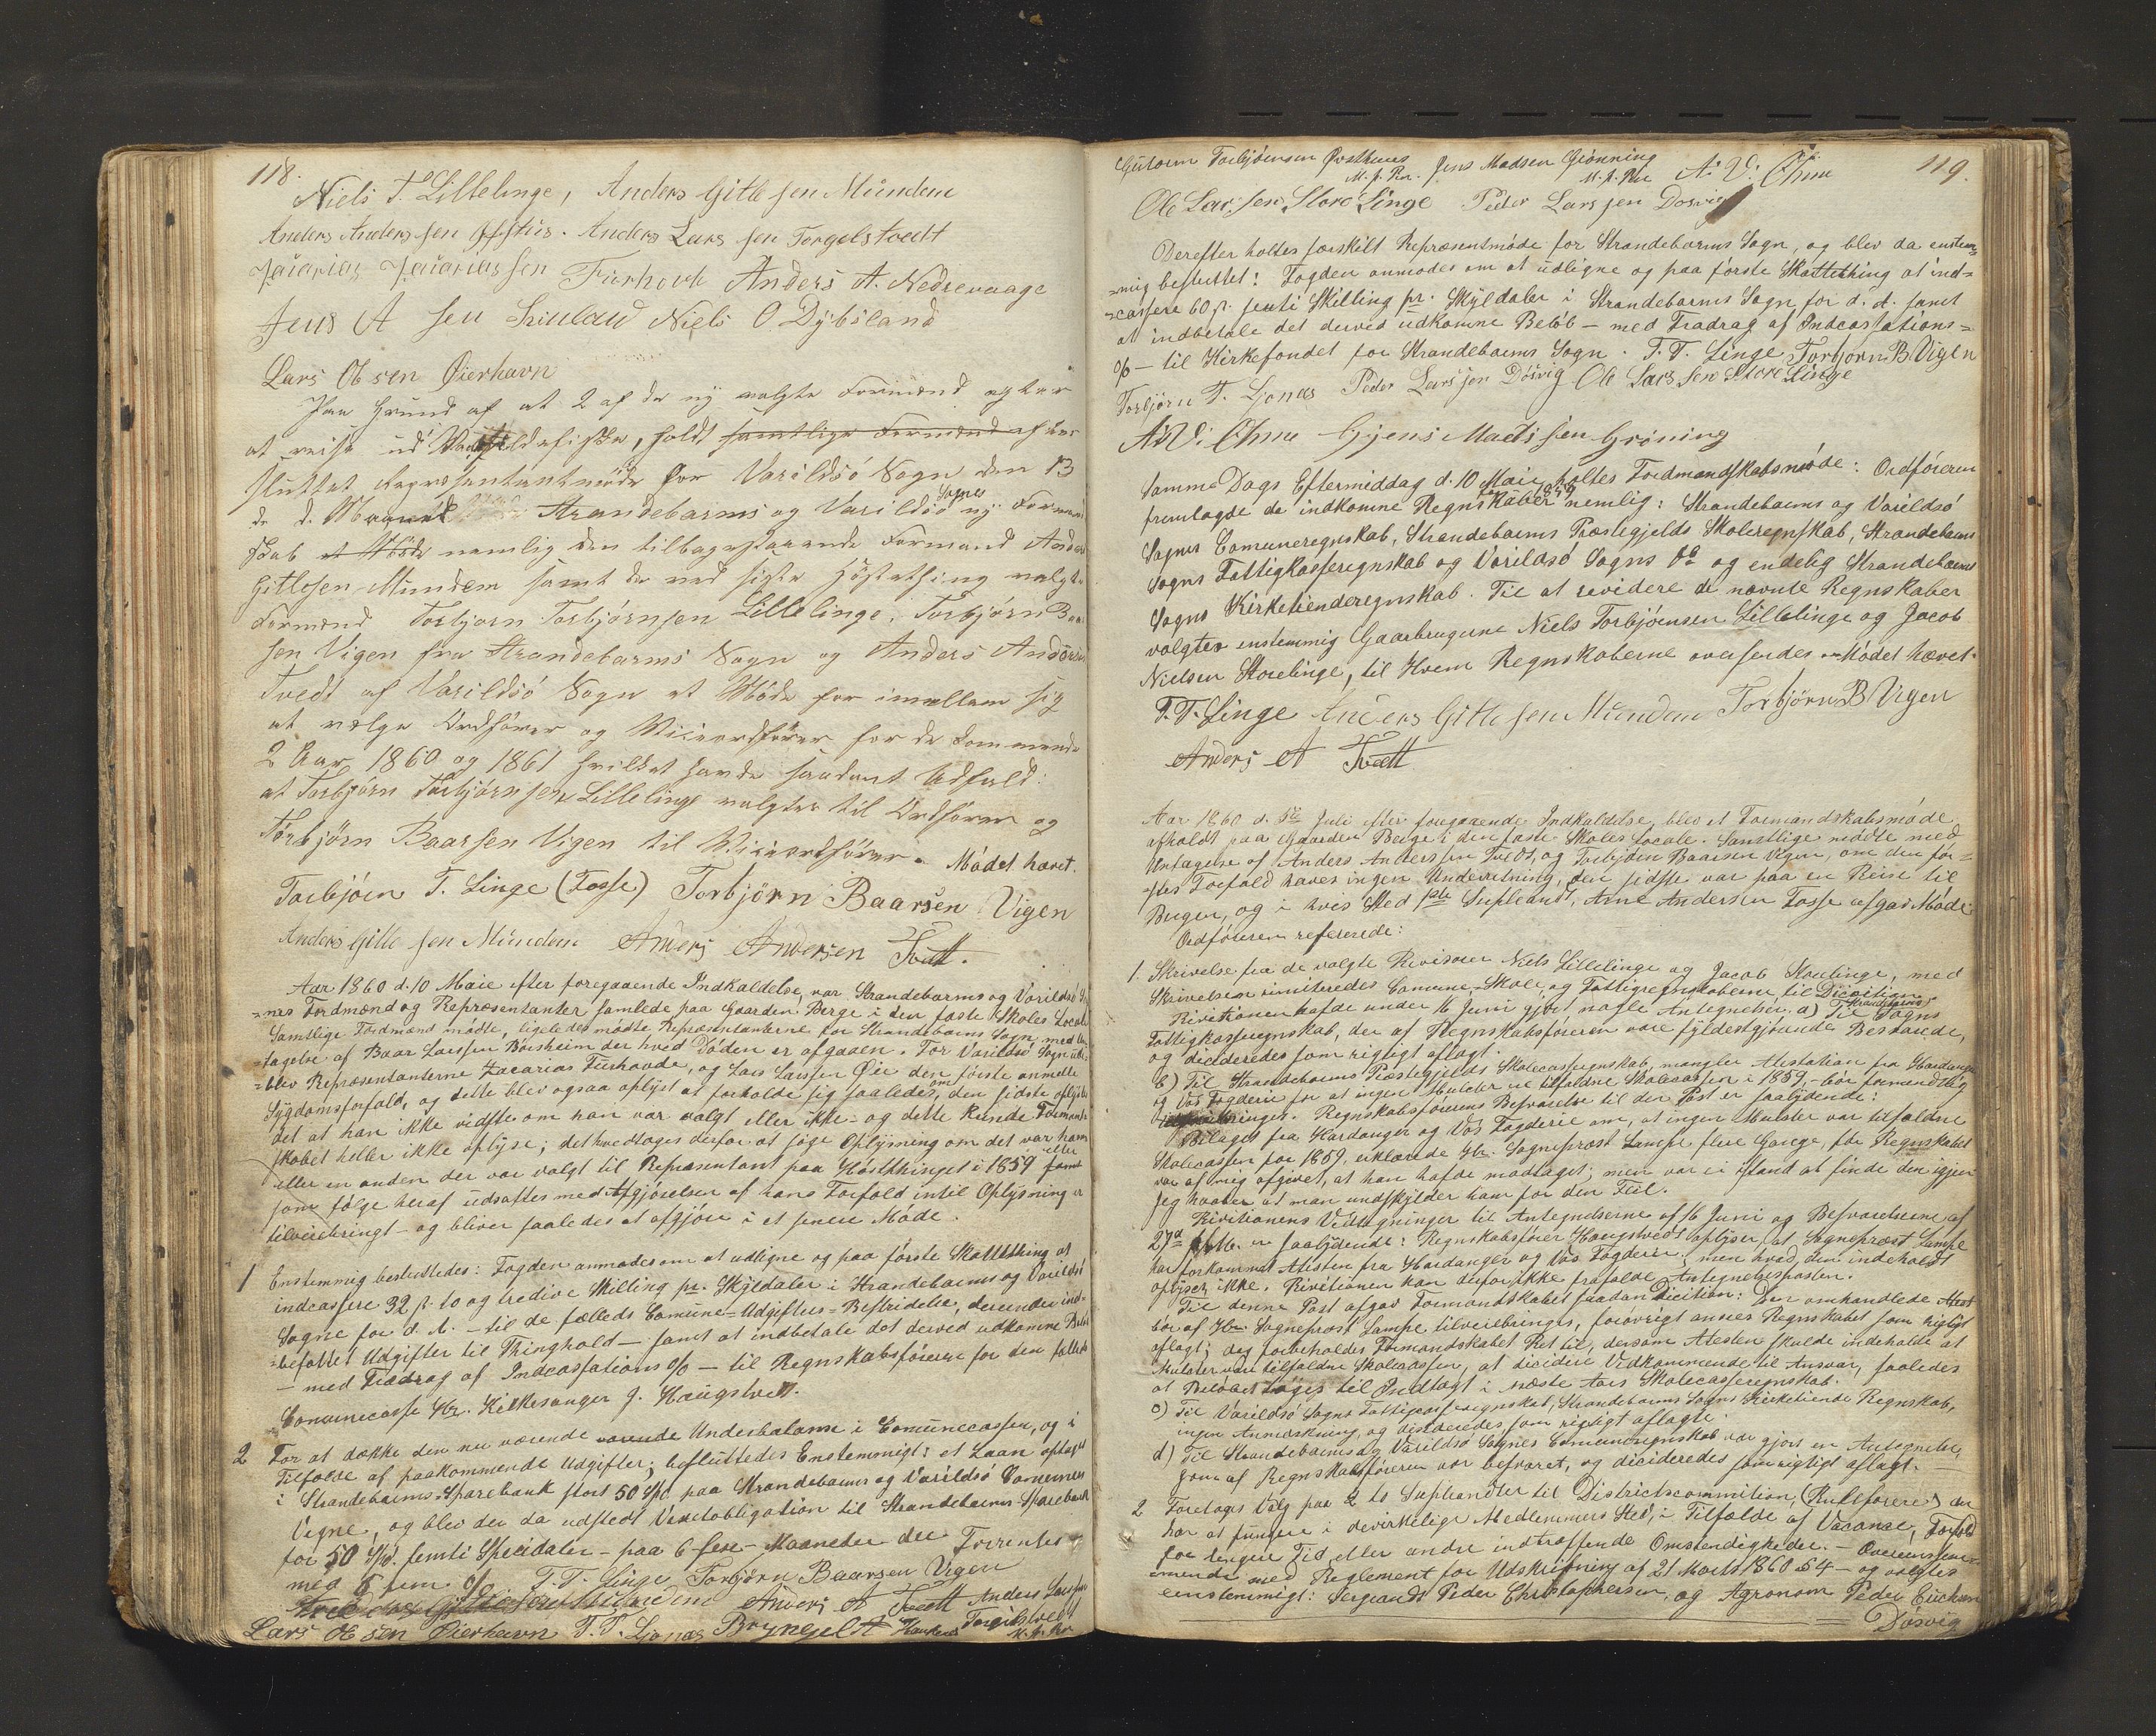 118.
Niels T. Lillelinge, Anders Gitlesen Mundem
Anders Andersen Anders Larssen Torgelstvedt
Zacarias Zacariassen Furhovde Anders A. Nedrevaage
Jens A sen Niels O Dybsland
Lars Olsen Øierhavn
Paa Grund af at 2 af de ny valgte Formænd agter
at reise ud Vaarsildefiske, holdt samtlige Formænd
sluttet Repræsentantmøde for Varildsö Sogn den 13
de d. Maaned Strandebarms og Varildsö Sognes ny Formænd
skab et Møde nemlig den tilbagestaaende Formand Anders
Gitlesen Mundem samt de ved sidste Høstething valgte
Formænd Torbjørn Torbjørnsen Lillelinge, Torbjørn Baar
sen Vigen fra Strandebarms Sogn og Anders Andersen
Tvedt af Varildsö Sogn et Møde for imellem sig
at vælge Ordfører og Viceordfører for de kommende
2 Aar 1860 og 1861 hvilket havde saadant Udfald:
at Torbjørn Torbjørnsen Lillelinge valgtes til Ordfører og
Torbjørn Baarsen Vigen til Viceordfører. Mødet hævet.
Torbjørn T. Linge (Fosse) Torbjörn Baarsen Vigen
Anders Gitlesen Mundem Anders Andersen Tvett.
Aar 1860 d. 10 Maie efter foregaaende Indkaldelse, var Strandebarms og Varildsö Sog
=nes Fordmænd og Repræsentanter samlede paa Gaarden Berge i den faste Skoles Locale
Samtlige Fordmænd mødte, ligeledes mødte Repræsentanterne for Strandebarms Sogn med Un
=tagelse af Baar Larssen Børsheim der hved Døden er afgaaen. For Varildsö Sogn ude
=blev Repræsentanterne Zacarias Furhovde, og Lars Larssen Øie den første anmeldte
Sygdomsforfald, og dette blev ogsaa oplyst at forholde sig saaledes, om den sidste oplystes
det at han ikke vidste om han var valgt eller ikke - og dette kunde Formand-
skabet heller ikke oplyse; det hvedtages derfor at søge Oplysning om det var ham
eller en anden der var valgt til Repræsentant paa Høstthinget i 1859 eller
som følge heraf udsattes med Afgjørelsen af hans Forfald intil Oplysning er
tilveiebringt - og bliver saaledes at afgjøre i et senere Møde.
1 Enstemmig besluttedes: Fogden anmodes om at udligne og paa første Skattthing at
indcassere 32 s. to og tredive Skilling pr. Skyldaler i Strandebarms og Varildsö
Sogne for d. A. - til de fælleds Comune-Udgifters-Bestridelse, derunder ind-
=befattet Udgifter til Thinghold - samt at indbetale det derved udkomne Beløb
- med Fradrag af Indcassations % - til Regnskabsføreren for den fælleds
Comunecasse Hr. Kirkesanger J. Haugstvedt.
2 For at dække den nu værende varende Underbalance i Comunecassen, og i
Tilfælde af paakommende Udgifter; besluttedes Enstemmigt: et Laan optaget
i Strandebarms-Sparebank stort 50 Spd. paa Strandebarms og Varildsö Comunes
Vegne, og blev der da udstedt Vexelobligation til Strandebarms-Sparebank
for 50 Spd. femti Speciedaler - paa 6 - sex - Maaneder der Forrentes
med 5 fem % T. T. Linge Torbjørn Baarsen Vigen
Anders Gitlesen Mundem Anders A Tvett Anders Larssen
Lars Olsen Øierhavn T. T. Ljones Torgilstvedt
M. f. Pen

119.
Guttorm Torbjørnsen Østhuus Jens Madsen Grønning A. V. Ohm
M. f. Pen. M. f. Pen
Ole Larssen Store Linge Peder Larssen Dosvig
Derefter holtes særskilt Repræsentmøde for Strandebarms Sogn, og blev da enstem=
=mig besluttet: Fogden anmodes om at udligne og paa første Skattething at ind=
=cassere 60 s. sexti Skilling pr. Skyldaler i Strandebarms Sogn for d. A. samt
at indbetale det derved udkomne Beløb - med Fradrag af Indcassations=
% - til Kirkefondet for Strandebarms Sogn. T. T. Linge Torbjørn B. Vigen
Torbjørn T. Ljones Peder Larssen Dösvig Ole Larssen Store Linge
A. V. Ohm Jens Madssen Gröning
Samme Dags Eftermiddag d. 10 Maie holtes Fordmandskabsmøde: Ordføreren
fremlagde de indkomne Regnskaber for 1859 nemlig: Strandebarms og Varildsö
Sognes Comuneregnskab, Strandebarms Præstegjelds Skoleregnskab, Strandebarms
Sogns Fattigkasseregnskab og Varildsö Sogns do og endelig Strandebarms
Sogns Kirketienderegnskab. Til at revidere de nævnte Regnskaber
valgtes enstemmig Gaarbrugerne Niels Torbjørnsen Lillelinge og Jacob
Nielsen Storelinge, til Hvem Regnskaberne oversendes - Mødet hævet.
T. T. Linge Anders Gitlesen Mundem Torbjörn B Vigen
Anders A Tvett
Aar 1860 d. Juli efter foregaaende Indkaldelse blev et Formandskabsmøde
afholdt paa Gaarden Berge i den faste Skoles Locale. Samtlige mødte med
Untagelse af Anders Anderssen Tvedt, og Torbjøn Baarsen Vigen, om den før=
=stes Forfald haves ingen Underretning, den sidste var paa en Reise til
Bergen, og i hvis Sted 1ste Supleandt, Arne Andersen Fosse afgav Møde
Ordføreren refererede:
1. Skrivelse fra de valgte Revisorer Niels Lillelinge og Jacob Storlinge, med
Skrivelsen rimiteredes Comune-Skole og Fattigregnskaberne til Dicision
Rivitionen hafde under 16 Juni gjort nogle Antegnelser. a) Til Strandebarms Sogns
Fattigkasseregnskab, der af Regnskabsføreren vare fyldestgjørende Besvarede,
og dicideredes som rigtigt aflagt.
b) Til Strandebarms Præstegjelds Skolecasseregnskab, mangler Atestation fra Hardanger
og Vos Fogderie for at ingen Mulcter er tilfaldne Skolecassen i 1859, - bør formendtlig
tilveiebringes. Regnskabsførerens Besvarelse til den Post er saalydende:
Bilaget fra Hardanger og Vos Fogderie om, at ingen Mulcter var tilfaldne
Skolecassen for 1859, erklærede Hr. Sognepræst Lampe flere Gange, før Regnskabet
var af mig afgivet, at han hafde modtaget; men var ei istand at finde den igjen
Jeg haaber at man undskylder ham for den Feil.
Rivitionens Vedtegninger til Antegnelserne af 16 Juni og Besvarelserne af
27de er saalydende: Regnskabsfører Haugstvedt oplyser, at Sognepræst Lampe
har forkommet Atesten fra Hardanger og Vos Fogderie; men hved den indeholdt
oplyser ikke. Rivitionen kan derfor ikke frafalde Antegnelsesposten.
Til denne Post afgav Formandskabet saadan Dicition: Den omhandlede Atest
bør af Hr. Sognepræst Lampe tilveiebringes, forøvrigt ansees Regnskabet som rigtigt
aflagt; dog forbeholdes Formandskabet Ret til, dersom Atesten skulde indeholde at
Mulcter var tilfaldne Skolecassen, at dicidere Vedkommende til Ansvar, saaledes
at Beløbet tages til Indtægt i næste Aars Skolecasseregnskab.
c) Til Varildsö Sogns Fattigcasseregnskab, Strandebarms Sogns Kirketiende Regnskab,
ingen Anmærkning, og dicideredes som rigtigt aflagte.
d) Til Strandebarms og Varildsö Sognes Comuneregnskab var gjort en Antegnelse,
som af Regnskabsføreren var besvaret, og dicideredes som rigtigt aflagt.
2 Foretoges Valg paa 2 to Supleandter til Districtscommition, (Rulleførere) der
har at fungere i de virkelige Medlemmers Sted, i Tilfælde af Vacance, Forfald
for lengere Tid eller andre indtræffende Omstendigheder. - Overensstem-
mende med Reglement for Udskrivning af 21 Marts 1860 § 4 - og valgtes
eenstemmigt: Sergeandt Peder Christophersen, og Agronom Peder Erichsen
Dösvig